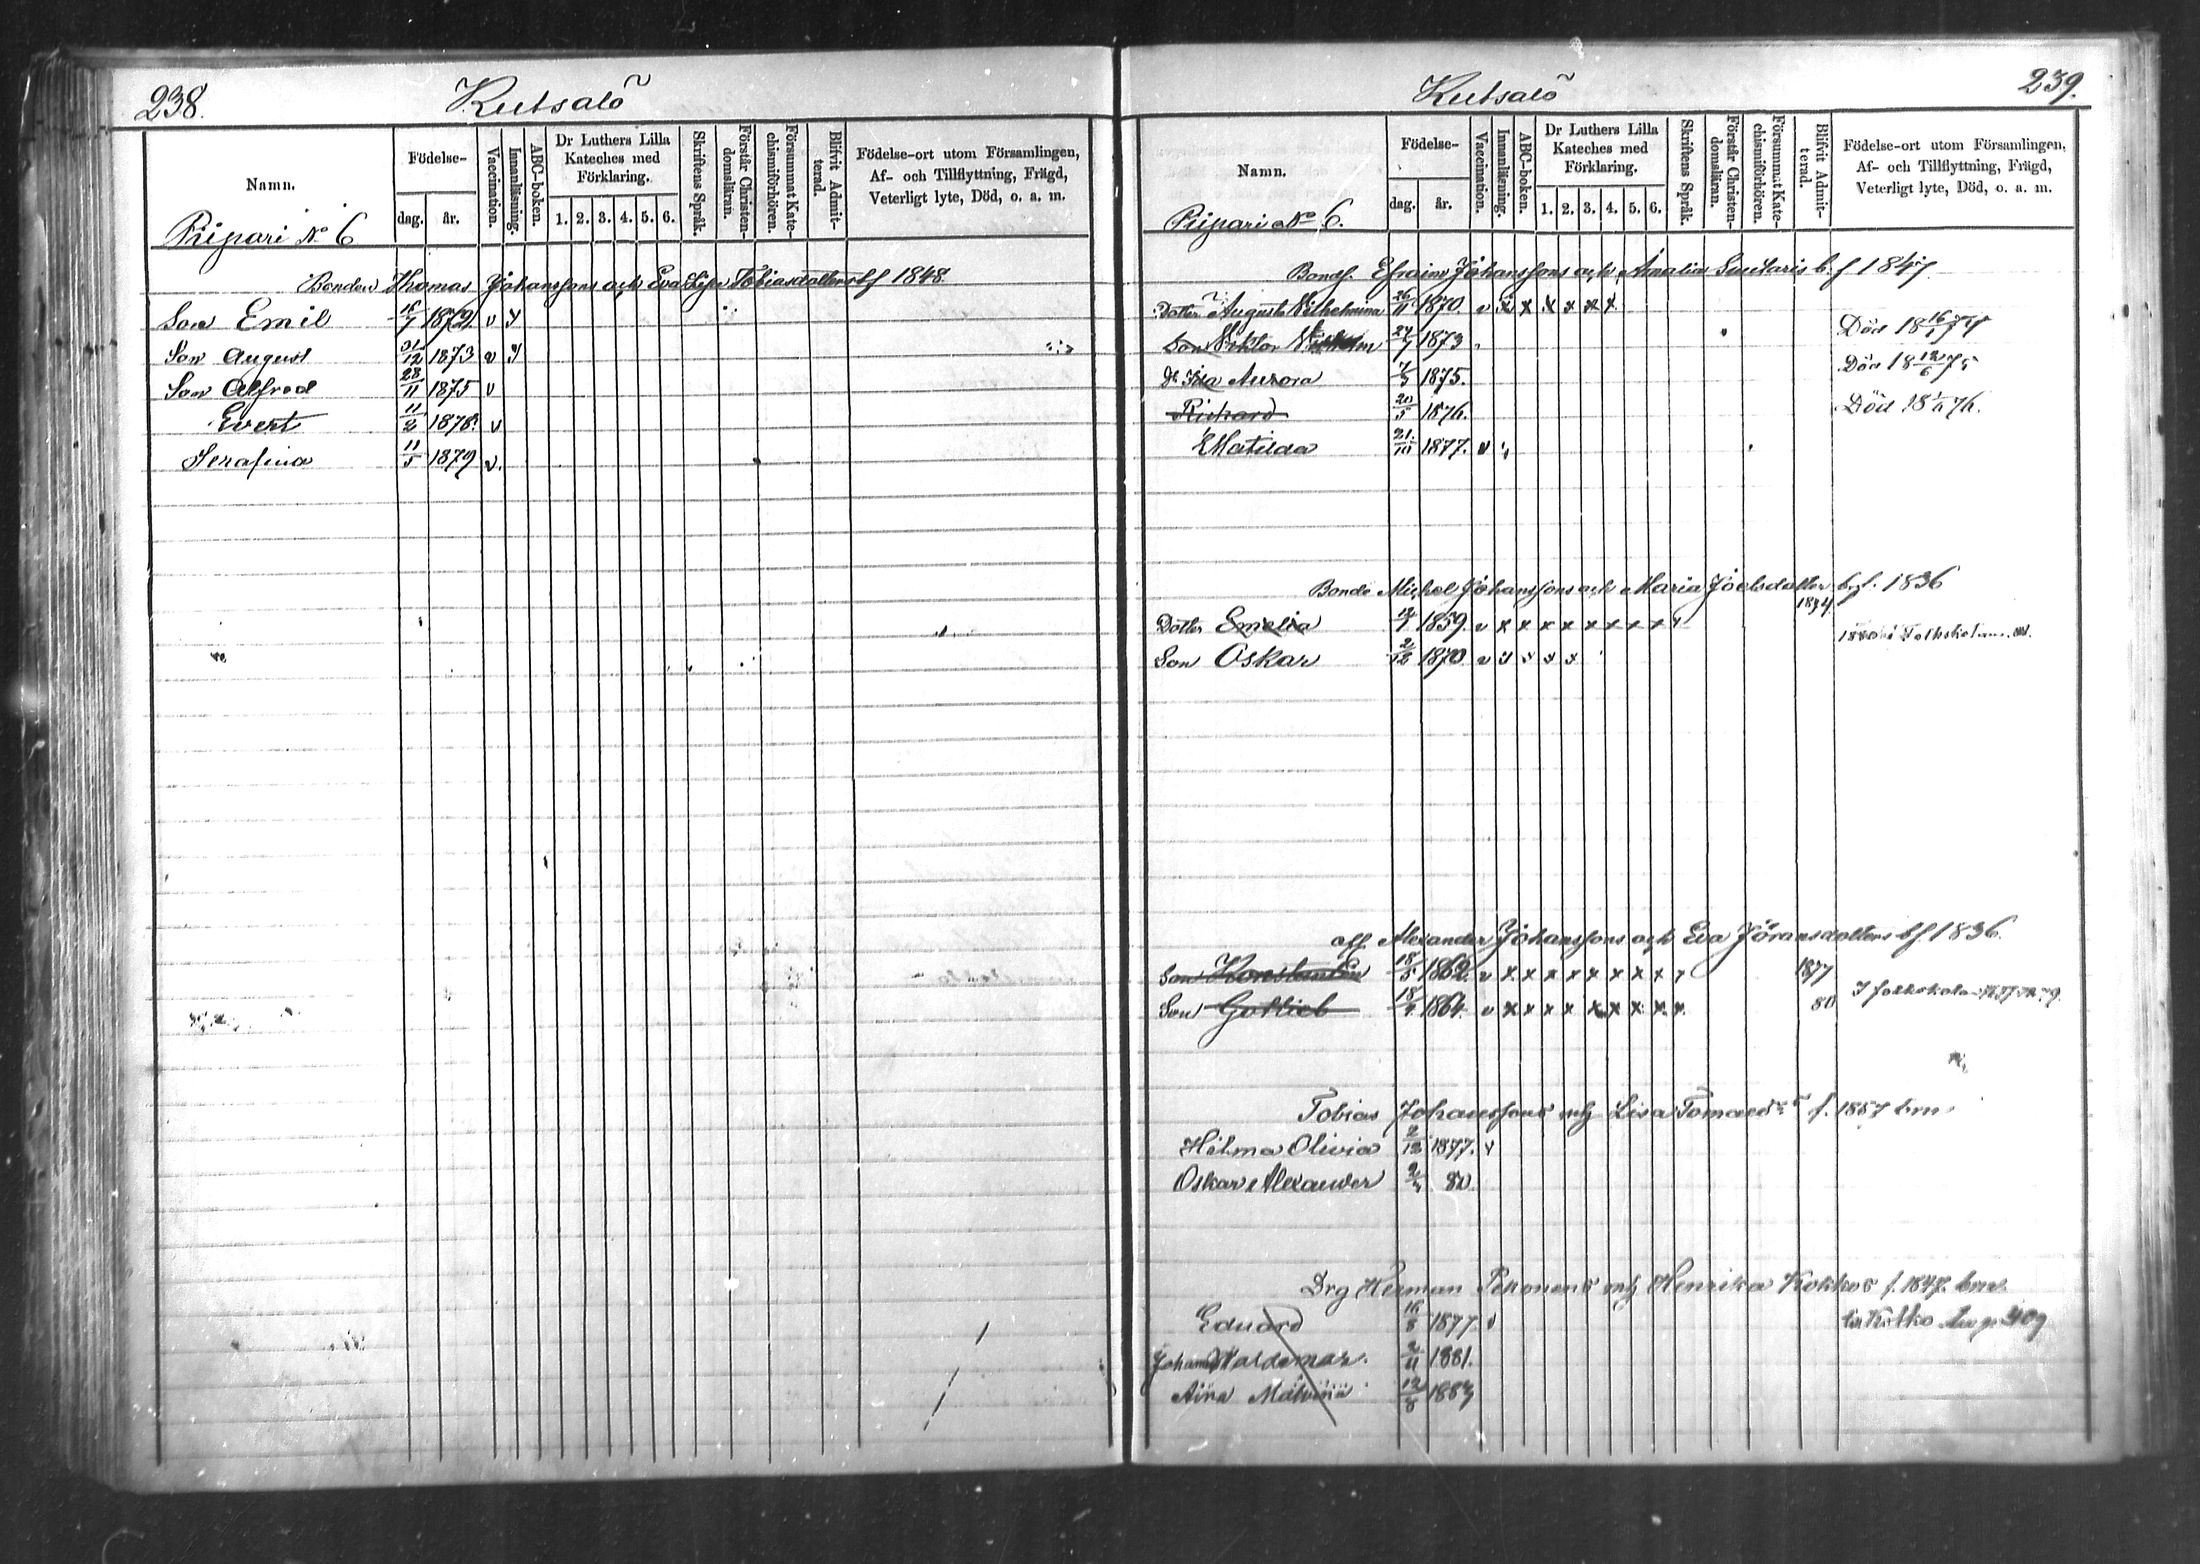 238.
Kutsalö
Namn.
Födelse-
dag.
år.
Vaccination.
Innanläsning.
ABC-boken.
Dr Luthers Lilla Kateches med Förklaring.
1. 2. 3. 4. 5. 6.
Skriftens Språk.
Förstår Christen-domsläran.
Försummat Kate-chismiförhören.
Blifvit Admit-terad.
Födelse-ort utom Församlingen,
Af- och Tillflyttning, Frägd,
Veterligt lyte, Död, o. a. m.
Pripari No 6
Bonden Thomas Johanssons och Eva Lisa Tobiasdotters bf 1848.
Son Emil 16/7 1872. v y
Son August 31/12 1873 v y
Son Alfred 23/11 1875 v
Evert 11/2 1878. v
Serafina 11/5 1879 v.
Kutsalö
239.
Namn.
Födelse-
dag.
år.
Vaccination.
Innanläsning.
ABC-boken.
Dr Luthers Lilla Kateches med Förklaring.
1. 2. 3. 4. 5. 6.
Skriftens Språk.
Förstår Christen-domsläran.
Försummat Kate-chismiförhören.
Blifvit Admit-terad.
Födelse-ort utom Församlingen,
Af- och Tillflyttning, Frägd,
Veterligt lyte, Död, o. a. m.
Pripari No 6.
Bondf. Efraim Johanssons och Amalia b. f 1847
Dotter Augusta Vilhelmina 26/11 1870. v x x x x x x
Son Viktor 24/7 1873 Död
Aurora 1875. Död 18 12/6 75
Richard 20/5 1876. Död
Matilda 21/10 1877. v
Bonde Michel Johanssons och Maria Joelsdotter bf. 1836
Dotter Emelia 12/7 1859. v x x x x x x x x 1874
Son Oskar 2/12 1870 v
aff Alexander Johanssons och Eva Jöransdotters bf 1836.
Son Konstantin 18/5 1862. v x x x x x x x x 1877
Son Gottlieb 18/4 1864. v x x x x x x x x 80 I folkskola
Tobias Johanssons m/h Lisa f. 1857
Hilma Olivia 2/12 1877. v
Oskar Alexander 80.
Drg Herman Pekonens m/h Henrika Kokkos f. 1847.
Eduard 16/8 1877. v
Johan Valdemar. 2/11 1881.
Aina Malvina 12/8 1883